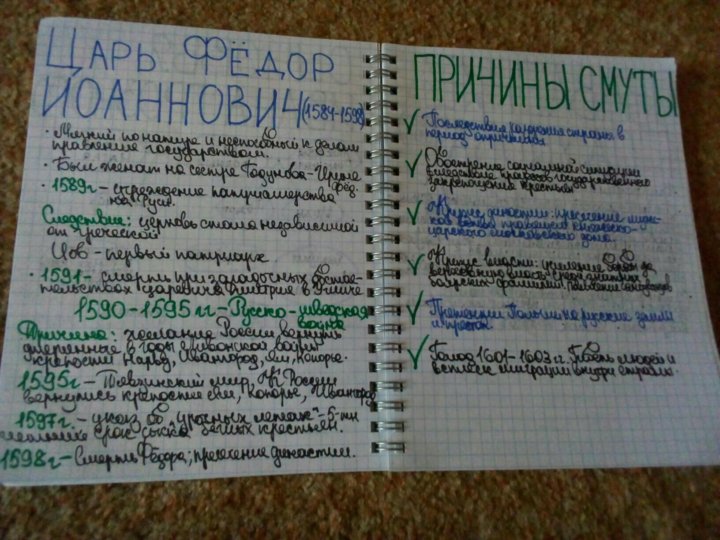 ЦАРЬ ФЁДОР
ИОАННОВИЧ (1584-1598)
· Мягкий по натуре и неспособный к делам
правления государством.
· Был женат на сестре Годунова - Ирине
1589г - учреждение патриаршества
на Руси.
Следствие: церковь стала независимой
от греческой
Иов - первый патриарх.
· 1591 - смерть при загадочных обстоя-
тельствах царевича Дмитрия в Угличе
1590-1595 гг - Русско-шведская
война
Причина: желание России вернуть
утерянные в годы Ливонской войны
крепости Нарву, Ивангород, Ям, Копорье.
1595г - Тявзинский мир. России
вернулись крепости Ям, Копорье, Ивангород
1597г. - указ об "урочных летах" - 5-ти
срок сыска беглых крестьян.
1598г - Смерть Фёдора; пресечение династии.
ПРИЧИНЫ СМУТЫ
✓ Последствия разорения страны в
период опричнины
✓ Обострение социальной ситуации
вследствие процесса государственного
закрепощения крестьян
✓ Кризис династии: пресечение муж-
ской ветви правящего княжеско-
царского московского дома.
✓ Кризис власти: усиление борьбы за
верховную власть среди знатных
боярских фамилий.
✓ Претензии Польши на русские земли
и престол
✓ Голод 1601-1603 гг. Гибель людей и
всплеск миграции внутри страны.